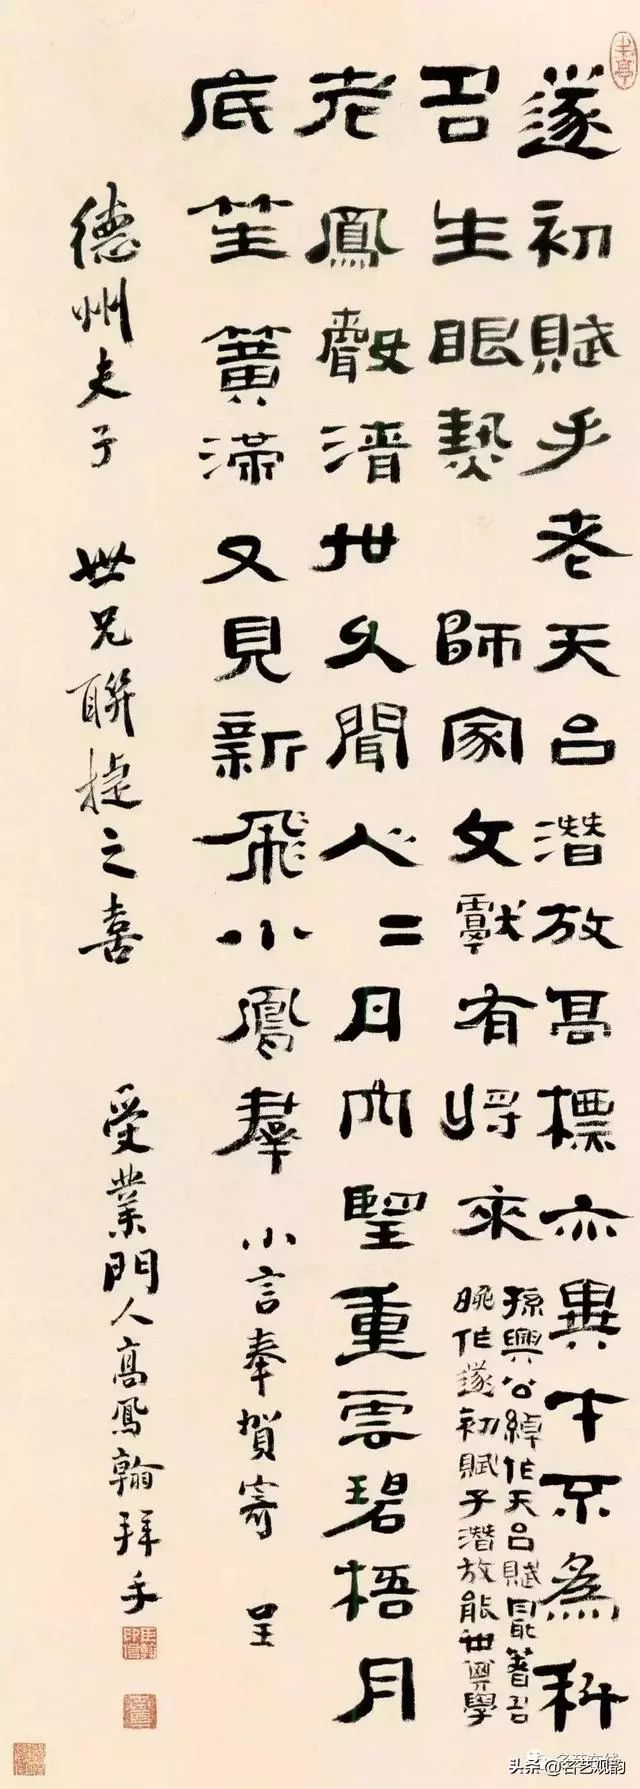 遂初賦手老天台潛放高標亦異才不為科
名生眼熱 師家文獻有將來
孫興公綽作天台賦著名
晚作遂初賦子潛放能世其學
老鳳聲清世久聞二月內望重雲碧梧月
底笙簧滿又見新飛小鳳羣 小言奉賀寄 呈
德州夫子 世兄聯捷之喜 受業門人高鳳翰拜手
头条 @名艺观韵
名艺在线